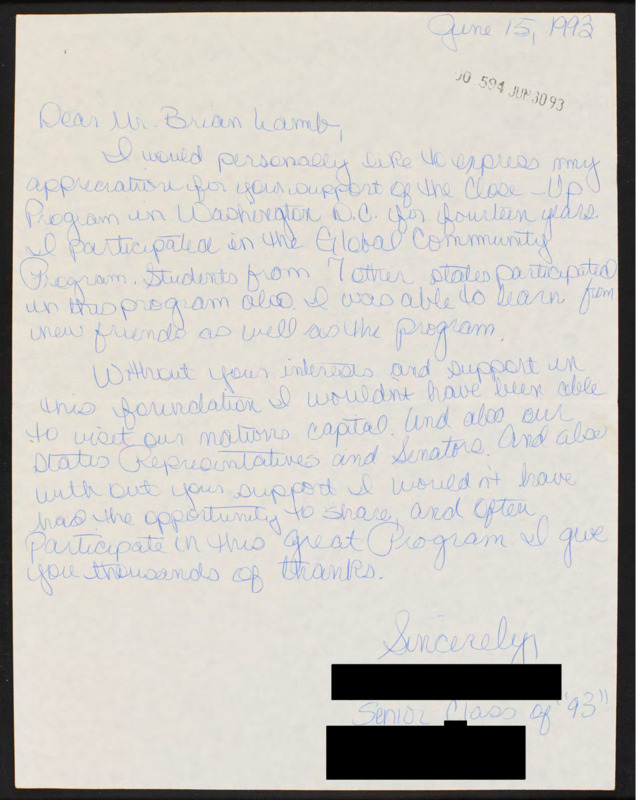 June 15, 1993
00 594 JUN 30 93
Dear Mr. Brian Lamb,
I would personally like to express my
appreciation for your support of the Close-Up
Program in Washington D.C. for fourteen years.
I participated in the Global Community
Program. Students from 7 other states participated
in this program also. I was able to learn from
new friends as well as the program.
Without your interests and support in
this foundation I wouldn't have been able
to visit our nations capital. And also our
States Representatives and Senators. And also
with out your support I wouldn't have
had the opportunity to share, and often
Participate in this great Program I give
you thousands of thanks.
Sincerely,
Senior Class of "93"